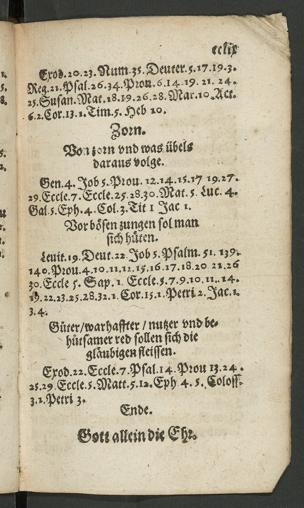 cclix
Exod.20.23. Num.35. Deuter.5.17.19.3.
Reg.21. Psal.26.34. Prou.6.14.19.21.24.
25. Susan. Mat.18.19.26.28. Mar.10 Act.
6.2.Cor.13.1.Tim.5. Heb 10.
Zorn.
Von zorn vnd was übels
daraus volge.
Gen.4. Job 5. Prou. 12.14.15.17 19.27.
29. Eccle.7. Eccle.25.28.30. Mat.5. Luc. 4.
Gal.5. Eph.4. Col.3. Tit 1 Jac 1.
Vor bösen zungen sol man
sich hüten.
Leuit.19. Deut.22. Job 5. Psalm. 51. 139.
140. Prou.4.10.11.11.15.16.17.18.20 21.26
30. Eccle 5. Sap. 1. Eccle.5.7.9.10.11.14.
19.22.23.25.28.32.1. Cor.15.1. Petri 2. Jac.1.
3.4.
Güter/warhaffter/nutzer vnd be-
hütsamer red sollen sich die
gläubigen fleissen.
Exod.22. Eccle.7. Psal.14. Prou 13.24.
25.29 Eccle.5. Matt.5.12. Eph 4. 5. Coloss.
3.1. Petri 3.
Ende.
Gott allein die Ehr.